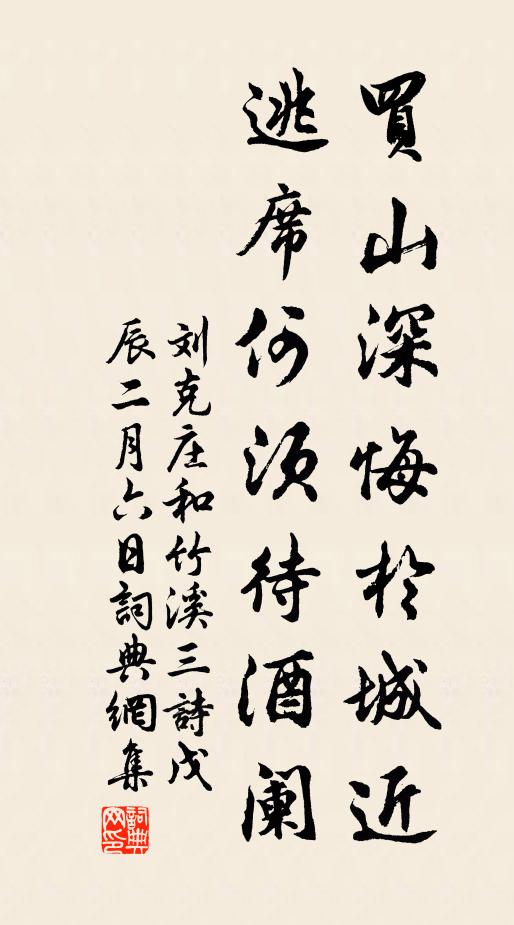 買山深悔於城近
逃席何須待酒阑
刘克庄和竹溪三詩戊
辰二月六日詞典網集
詞典網印